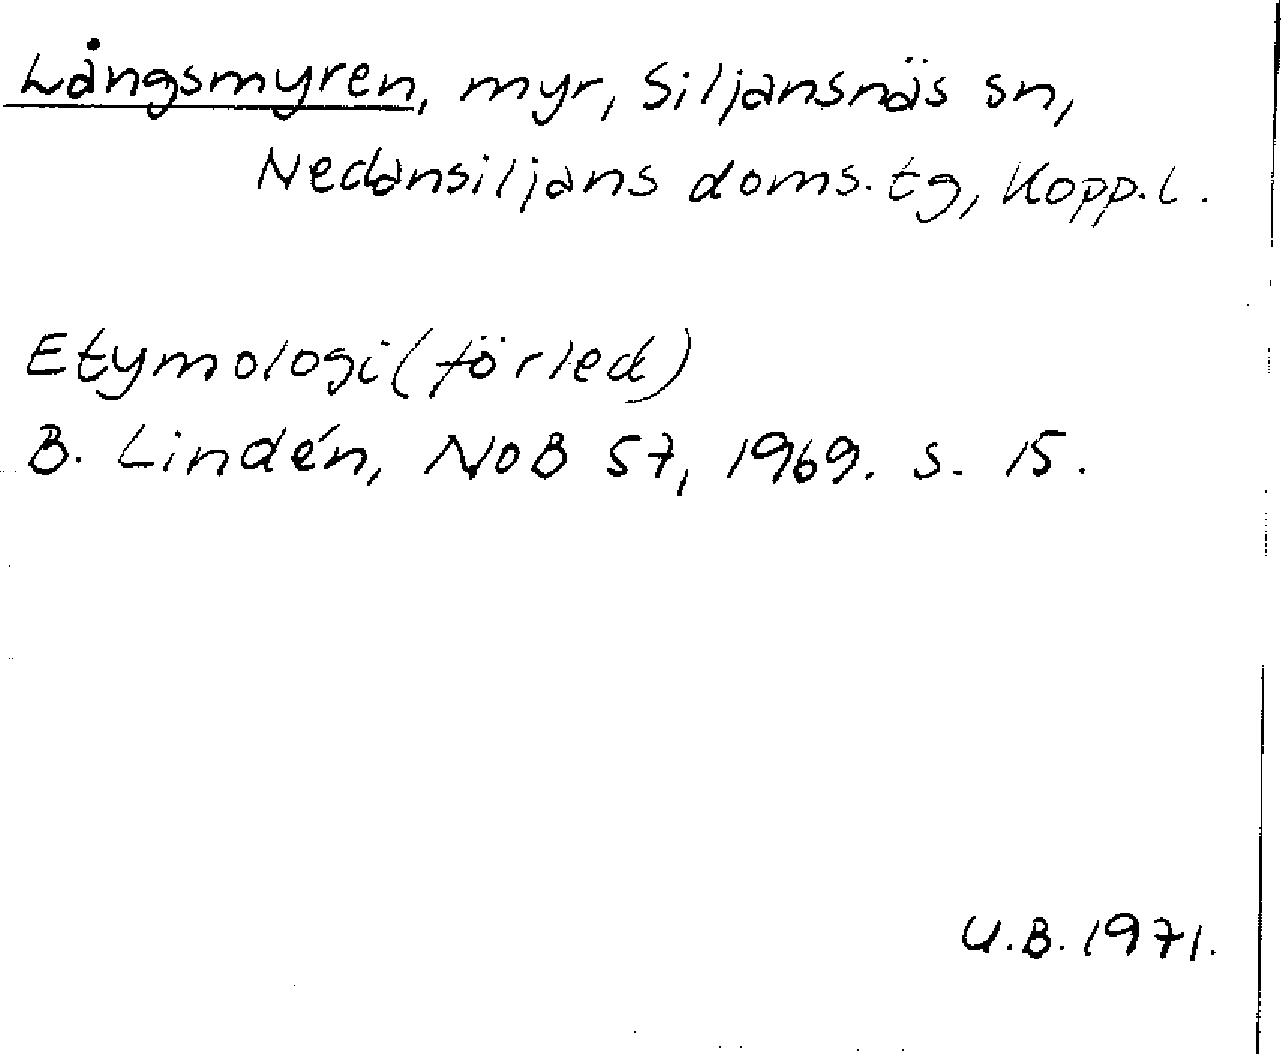 Långsmyren, myr, Siljansnäs sn,
Nedansiljans doms. tg, Kopp. l.
Etymologi (förled)
B. Lindén, NoB 57, 1969. s. 15.
U.B. 1971.